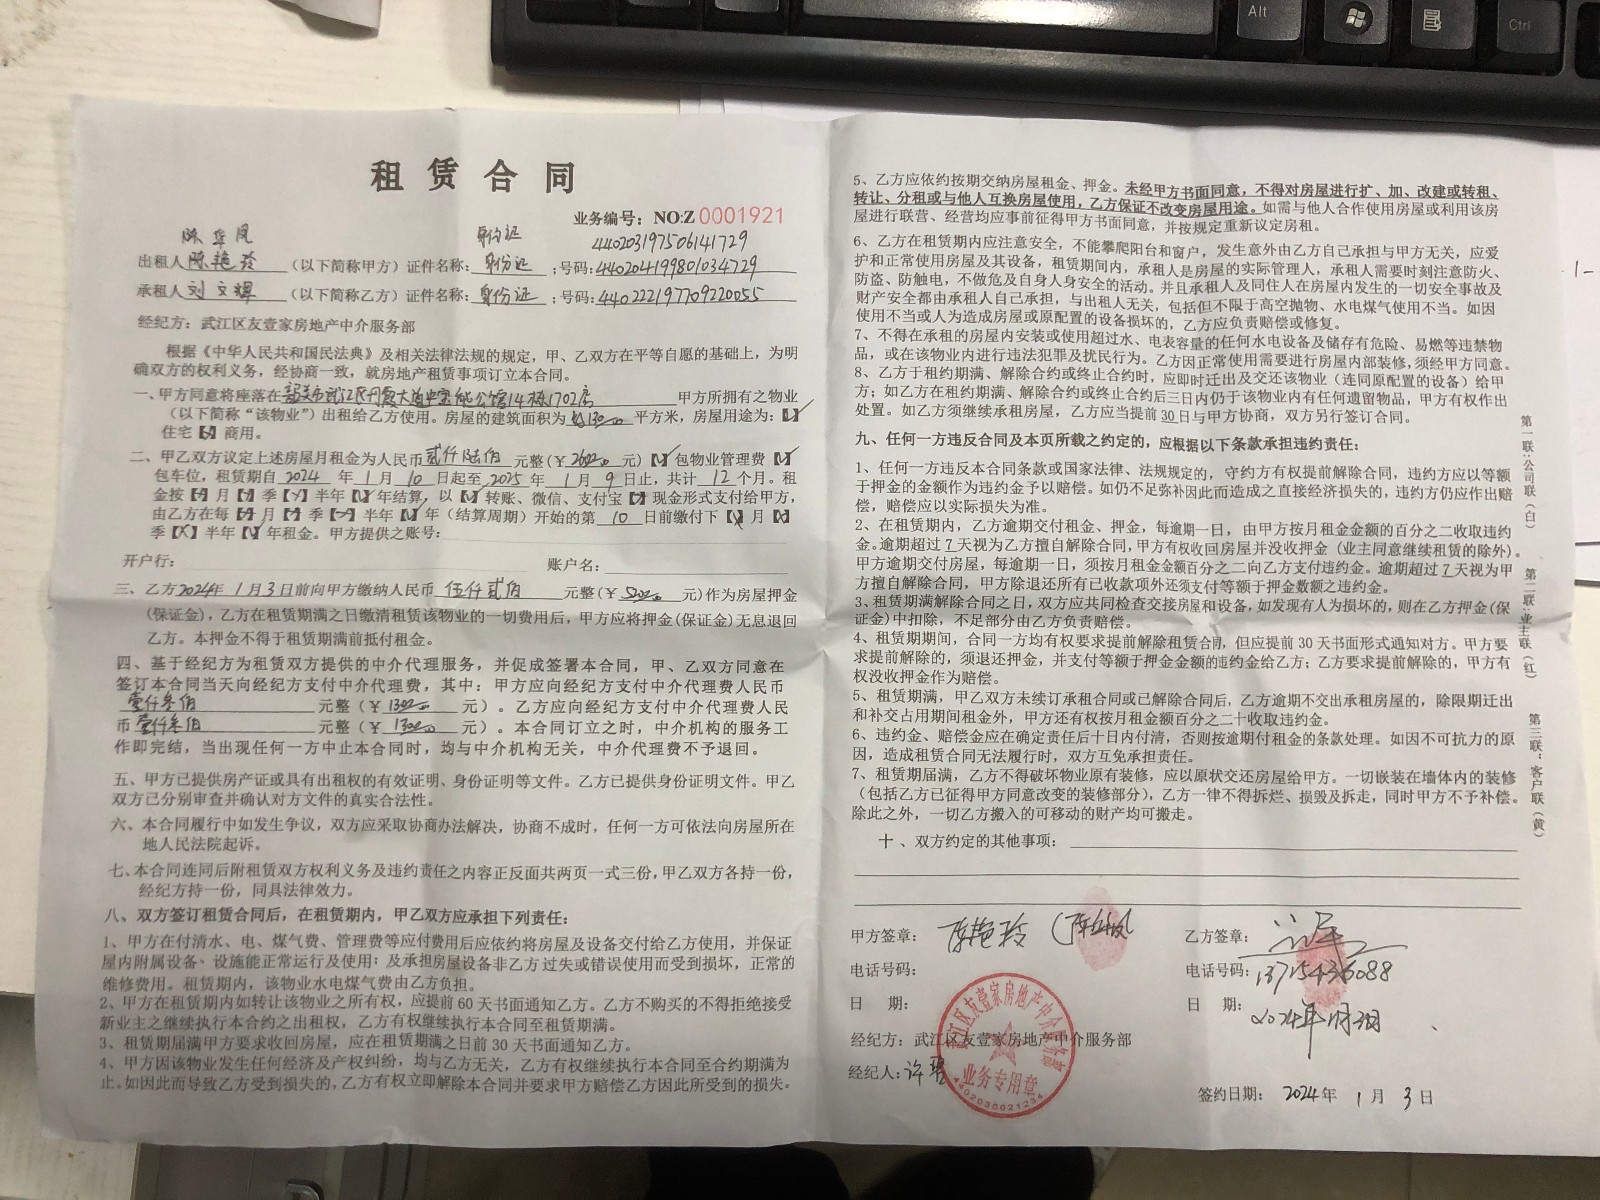 租赁合同
业务编号：NO:Z 0001921
陈华凤 身份证 440203197506141729
出租人 陈艳玲 （以下简称甲方）证件名称：身份证 ；号码：440204199801034729
承租人 刘文辉 （以下简称乙方）证件名称：身份证 ；号码：440222197709220055
经纪方：武江区友壹家房地产中介服务部
根据《中华人民共和国民法典》及相关法律法规的规定，甲、乙双方在平等自愿的基础上，为明
确双方的权利义务，经协商一致，就房地产租赁事项订立本合同。
一、甲方同意将座落在 韶关市武江区 大道中 公馆14栋1702房 甲方所拥有之物业
（以下简称“该物业”）出租给乙方使用。房屋的建筑面积为 130 平方米，房屋用途为：【√】
住宅【】商用。
二、甲乙双方议定上述房屋月租金为人民币 贰仟陆佰 元整（￥2600 元）【√】包物业管理费【√】
包车位，租赁期自 2024 年 1 月 10 日起至 2025 年 1 月 9 日止，共计 12 个月。租
金按【】月【】季【】半年【】年结算，以【】转账、微信、支付宝【】现金形式支付给甲方，
由乙方在每【】月【】季【】半年【】年（结算周期）开始的第 10 日前缴付下【】月【】
季【】半年【】年租金。甲方提供之账号：
开户行： 账户名：
三、乙方 2024年 1 月 3 日前向甲方缴纳人民币 伍仟贰佰 元整（￥5200 元）作为房屋押金
(保证金)，乙方在租赁期满之日缴清租赁该物业的一切费用后，甲方应将押金(保证金)无息退回
乙方。本押金不得于租赁期满前抵付租金。
四、基于经纪方为租赁双方提供的中介代理服务，并促成签署本合同，甲、乙双方同意在
签订本合同当天向经纪方支付中介代理费，其中：甲方应向经纪方支付中介代理费人民币
壹仟叁佰 元整（￥1300 元）。乙方应向经纪方支付中介代理费人民
币 壹仟叁佰 元整（￥1300 元）。本合同订立之时，中介机构的服务工
作即完结，当出现任何一方中止本合同时，均与中介机构无关，中介代理费不予退回。
五、甲方已提供房产证或具有出租权的有效证明、身份证明等文件。乙方已提供身份证明文件。甲乙
双方已分别审查并确认对方文件的真实合法性。
六、本合同履行中如发生争议，双方应采取协商办法解决，协商不成时，任何一方可依法向房屋所在
地人民法院起诉。
七、本合同连同后附租赁双方权利义务及违约责任之内容正反面共两页一式三份，甲乙双方各持一份，
经纪方持一份，同具法律效力。
八、双方签订租赁合同后，在租赁期内，甲乙双方应承担下列责任：
1、甲方在付清水、电、煤气费、管理费等应付费用后应依约将房屋及设备交付给乙方使用，并保证
屋内附属设备、设施能正常运行及使用；及承担房屋设备非乙方过失或错误使用而受到损坏，正常的
维修费用。租赁期内，该物业水电煤气费由乙方负担。
2、甲方在租赁期内如转让该物业之所有权，应提前60天书面通知乙方。乙方不购买的不得拒绝接受
新业主之继续执行本合约之出租权，乙方有权继续执行本合同至租赁期满。
3、租赁期届满甲方要求收回房屋，应在租赁期满之日前30天书面通知乙方。
4、甲方因该物业发生任何经济及产权纠纷，均与乙方无关，乙方有权继续执行本合同至合约期满为
止。如因此而导致乙方受到损失的，乙方有权立即解除本合同并要求甲方赔偿乙方因此所受到的损失。
5、乙方应依约按期交纳房屋租金、押金。未经甲方书面同意，不得对房屋进行扩、加、改建或转租、
转让、分租或与他人互换房屋使用，乙方保证不改变房屋用途。如需与他人合作使用房屋或利用该房
屋进行联营、经营均应事前征得甲方书面同意，并按规定重新议定房租。
6、乙方在租赁期内应注意安全，不能攀爬阳台和窗户，发生意外由乙方自己承担与甲方无关，应爱
护和正常使用房屋及其设备，租赁期间内，承租人是房屋的实际管理人，承租人需要时刻注意防火、
防盗、防触电，不做危及自身人身安全的活动。并且承租人及同住人在房屋内发生的一切安全事故及
财产安全都由承租人自己承担，与出租人无关，包括但不限于高空抛物、水电煤气使用不当。如因
使用不当或人为造成房屋或原配置的设备损坏的，乙方应负责赔偿或修复。
7、不得在承租的房屋内安装或使用超过水、电表容量的任何水电设备及储存有危险、易燃等违禁物
品，或在该物业内进行违法犯罪及扰民行为。乙方因正常使用需要进行房屋内部装修，须经甲方同意。
8、乙方于租约期满、解除合约或终止合约时，应即时迁出及交还该物业（连同原配置的设备）给甲
方；如乙方在租约期满、解除合约或终止合约后三日内仍于该物业内有任何遗留物品，甲方有权作出
处置。如乙方须继续承租房屋，乙方应当提前30日与甲方协商，双方另行签订合同。
九、任何一方违反合同及本页所载之约定的，应根据以下条款承担违约责任：
1、任何一方违反本合同条款或国家法律、法规规定的，守约方有权提前解除合同，违约方应以等额
于押金的金额作为违约金予以赔偿。如仍不足弥补因此而造成之直接经济损失的，违约方仍应作出赔
偿，赔偿应以实际损失为准。
2、在租赁期内，乙方逾期交付租金、押金，每逾期一日，由甲方按月租金金额的百分之二收取违约
金。逾期超过7天视为乙方擅自解除合同，甲方有权收回房屋并没收押金（业主同意继续租赁的除外）。
甲方逾期交付房屋，每逾期一日，须按月租金金额百分之二向乙方支付违约金。逾期超过7天视为甲
方擅自解除合同，甲方除退还所有已收款项外还须支付等额于押金数额之违约金。
3、租赁期满解除合同之日，双方应共同检查交接房屋和设备，如发现有人为损坏的，则在乙方押金(保
证金)中扣除，不足部分由乙方负责赔偿。
4、租赁期期间，合同一方均有权要求提前解除租赁合同，但应提前30天书面形式通知对方。甲方要
求提前解除的，须退还押金，并支付等额于押金金额的违约金给乙方；乙方要求提前解除的，甲方有
权没收押金作为赔偿。
5、租赁期满，甲乙双方未续订承租合同或已解除合同后，乙方逾期不交出承租房屋的，除限期迁出
和补交占用期间租金外，甲方还有权按月租金额百分之二十收取违约金。
6、违约金、赔偿金应在确定责任后十日内付清，否则按逾期付租金的条款处理。如因不可抗力的原
因，造成租赁合同无法履行时，双方互免承担责任。
7、租赁期届满，乙方不得破坏物业原有装修，应以原状交还房屋给甲方。一切嵌装在墙体内的装修
（包括乙方已征得甲方同意改变的装修部分），乙方一律不得拆烂、损毁及拆走，同时甲方不予补偿。
除此之外，一切乙方搬入的可移动的财产均可搬走。
十、双方约定的其他事项：
甲方签章：陈艳玲 乙方签章：
电话号码： 电话号码：13715436088
日 期： 日 期：2024年1月3日
经纪方：武江区友壹家房地产中介服务部
经纪人：许
签约日期：2024年 1 月 3 日
武江区友壹家房地产中介服务部
业务专用章
4402030021234
第一联：公司联（白）
第二联：业主联（红）
第三联：客户联（黄）
Alt
Ctrl